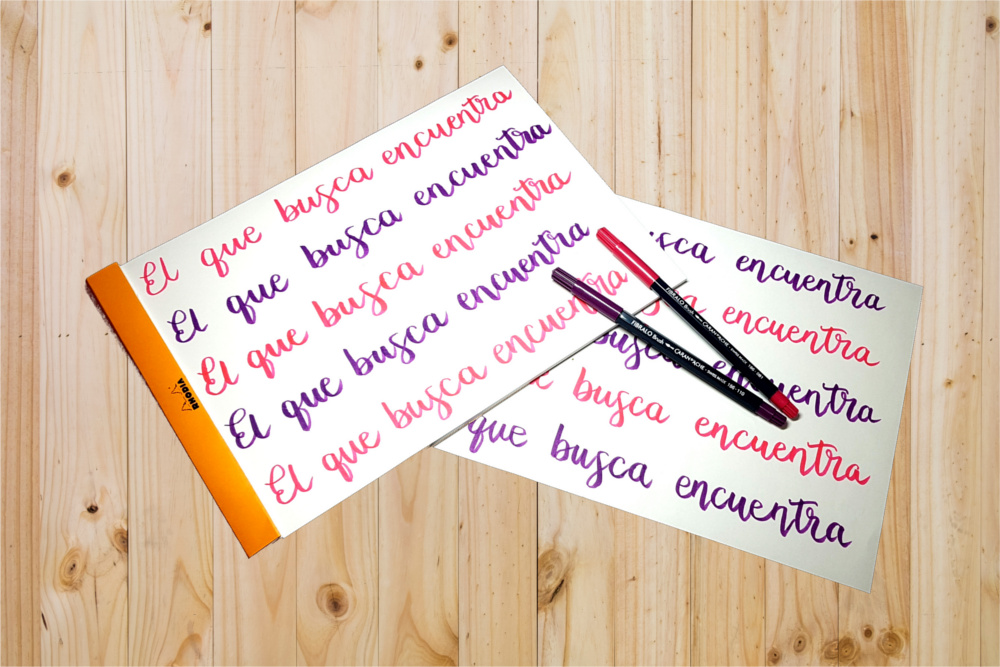 El que busca encuentra
El que busca encuentra
El que busca encuentra
El que busca encuentra
El que busca encuentra
RHODIA
busca encuentra
encuentra
busca encuentra
busca encuentra
que busca encuentra
FIBRALO Brush CARAN d'ACHE SWISS MADE 186 · 081
FIBRALO Brush CARAN d'ACHE SWISS MADE 186 · 110